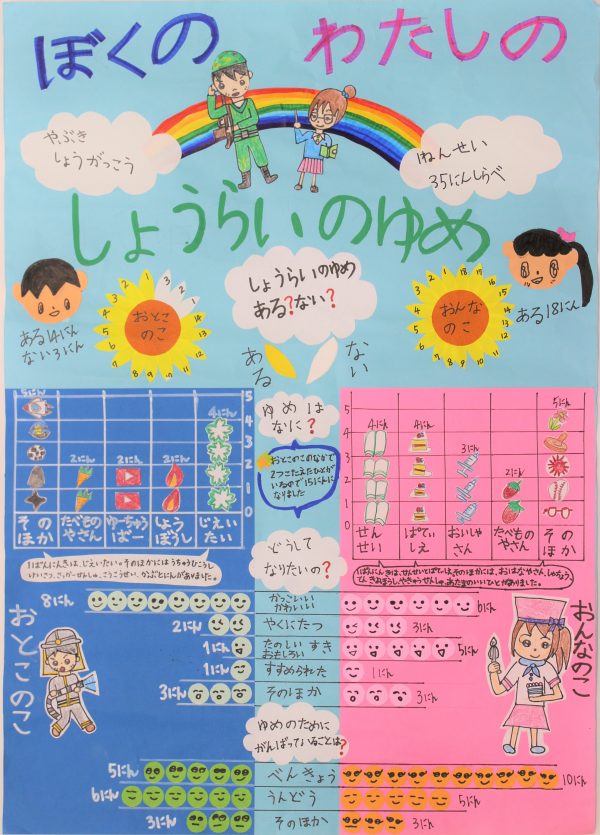 ぼくの わたしの
やぶき
しょうがっこう
1ねんせい
35にんしらべ
しょうらいのゆめ
しょうらいのゆめ
ある?ない?
ある
ない
おとこ
のこ
1 2 3 1 2 3 4 5 6 7 8 9 10 11 12 13 14
ある14にん
ない3にん
おんな
のこ
1 2 3 4 5 6 7 8 9 10 11 12 13 14 15 16 17 18
ある18にん
ゆめは
なに?
おとこのこのなかで
2つこたえたひとが
いるので15にんに
なりました
5にん
2にん
2にん
2にん
4にん
5
4
3
2
1
0
そのほか
たべものやさん
ゆーちゅうばー
しょうぼうし
じえいたい
1ばんにんきは、じえいたい。そのほかにはうちゅうひこうし
けいさつ、さっかーせんしゅ、こうこうせい、かぶとにんがありました。
4にん
4にん
3にん
2にん
5にん
5
4
3
2
1
0
せんせい
ぱてぃしえ
おいしゃさん
たべものやさん
そのほか
どうして
なりたいの?
おとこのこ
おんなのこ
8にん
かっこいい
かわいい
6にん
2にん
やくにたつ
3にん
1にん
たのしい すき
おもしろい
5にん
1にん
すすめられた
1にん
3にん
そのほか
3にん
ゆめのために
がんばっていることは?
5にん
べんきょう
10にん
6にん
うんどう
5にん
3にん
そのほか
3にん